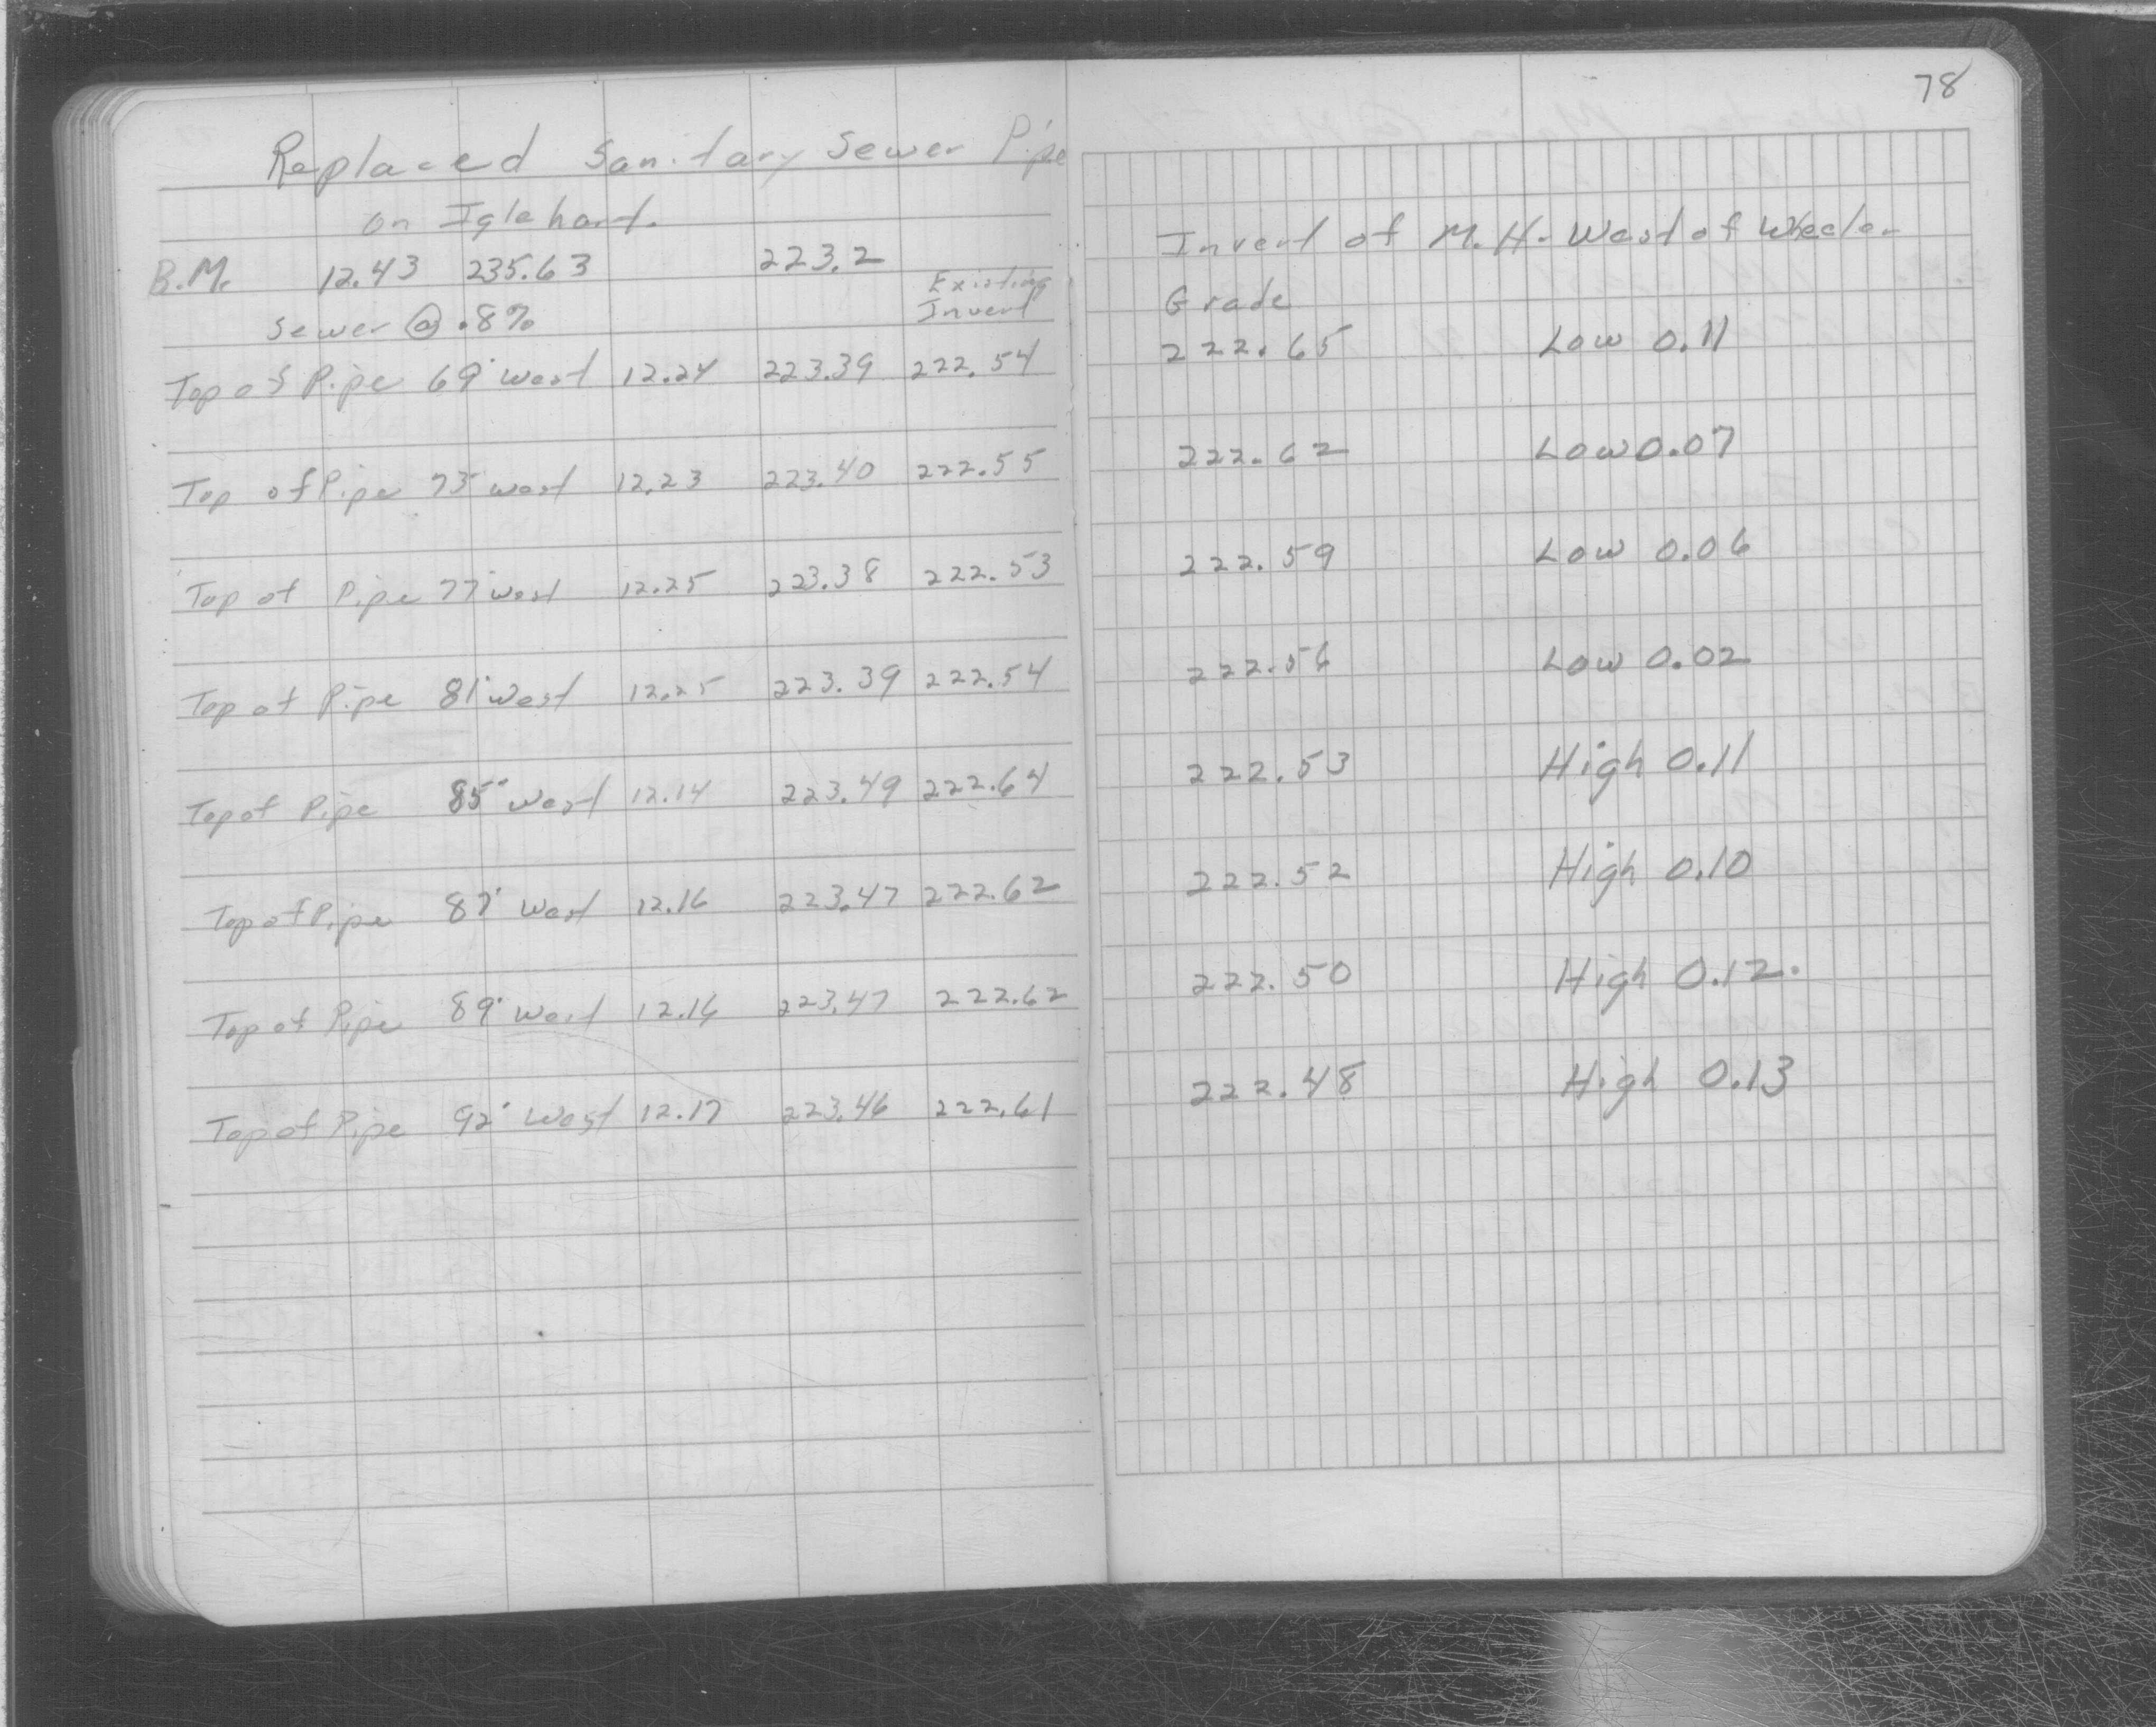 78
Replaced Sanitary Sewer Pipe
on Iglehart.
B.M. 12.43 235.63 223.2
Existing
Invert
Sewer @ .8%
Top of Pipe 69' West 12.24 223.39 222.54
Top of Pipe 73' west 12.23 223.40 222.55
Top of Pipe 77' west 12.25 223.38 222.53
Top of Pipe 81' West 12.25 223.39 222.54
Top of Pipe 85' West 12.14 223.49 222.64
Top of Pipe 87' West 12.16 223.47 222.62
Top of Pipe 89' West 12.16 223.47 222.62
Top of Pipe 92' West 12.17 223.46 222.61
Invert of M.H. West of Wheeler
Grade
222.65 Low 0.11
222.62 Low 0.07
222.59 Low 0.06
222.56 Low 0.02
222.53 High 0.11
222.52 High 0.10
222.50 High 0.12.
222.48 High 0.13